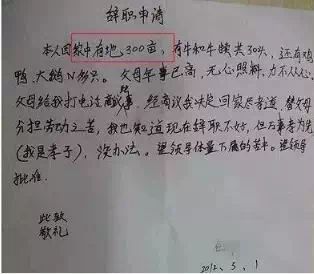 辞职申请
本人因家中有地300亩，有牛和牛犊共30头，还有鸡
鸭，大鹅N多只。父母年事已高，无心照料，力不从心。
父母给我打电话商议事，经商议我决定回家尽孝道，替父母
分担劳动之苦，我也知道现在辞职不好，但万事孝为先
(我是孝子)，没办法。望领导体量下属的苦中。望领导
批准.
此致
敬礼
2012、3、1